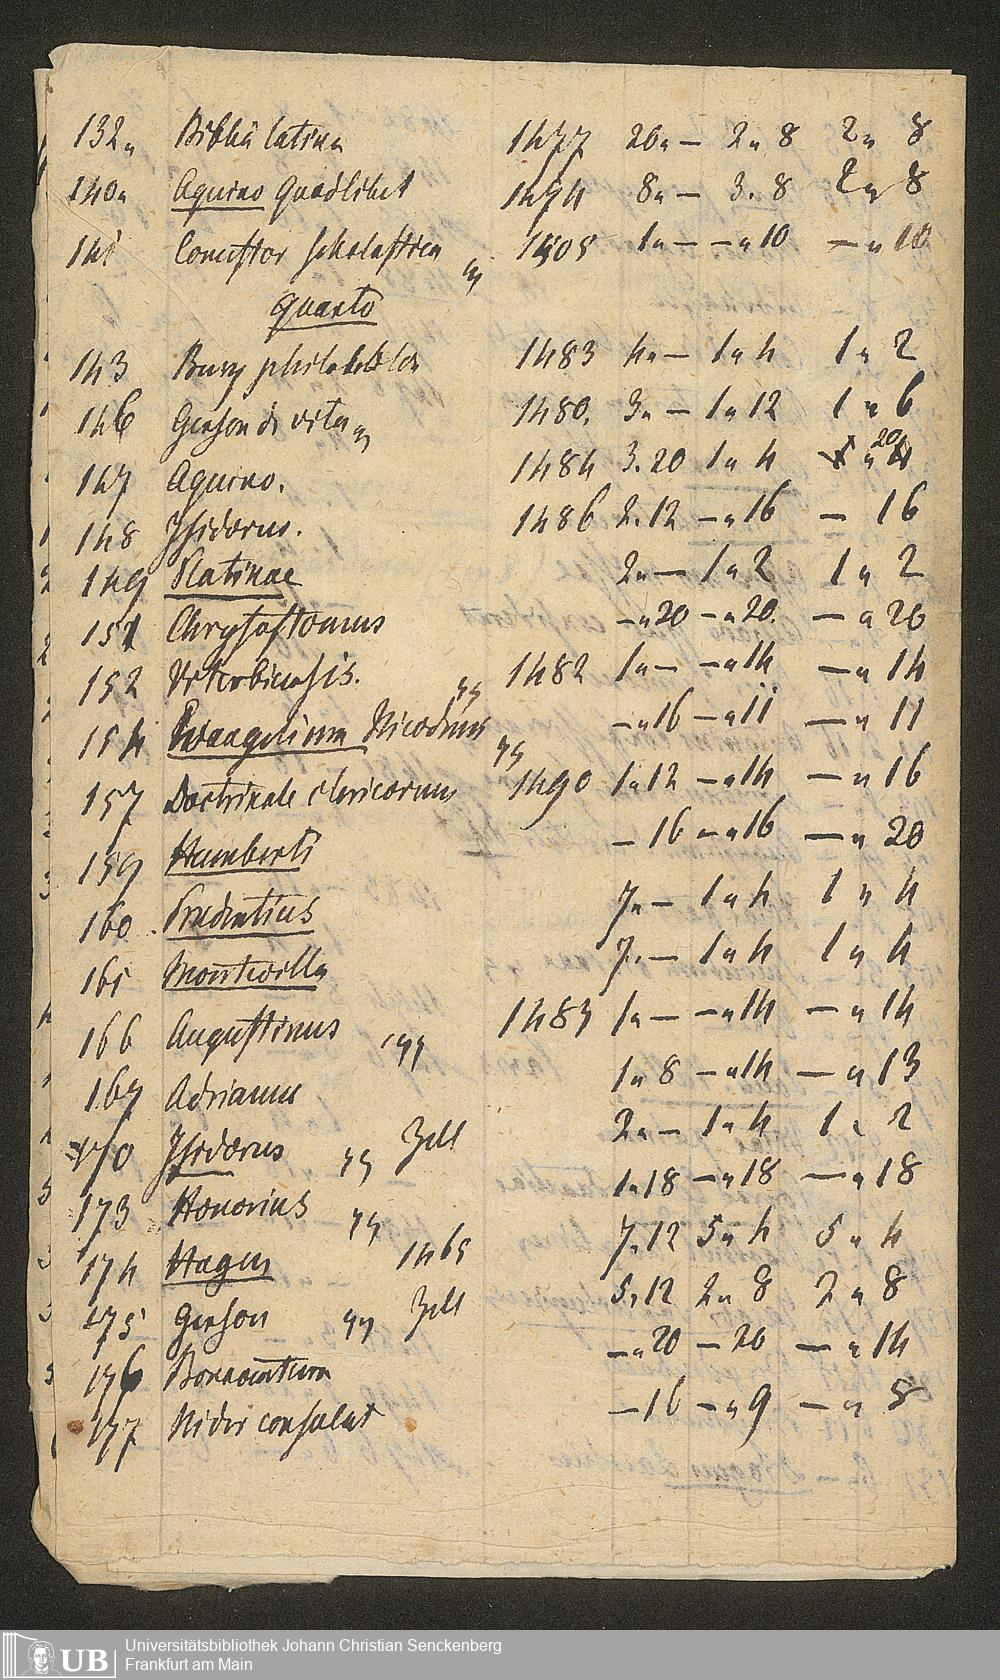 132„ Biblia latina 1477 20„ — 2„ 8 2„ 8
140„ Aquino Quodlibet 1474 8„ — 3. 8 2„ 8
141 Comestor scholastica 1505 1„ — —„10 —„10
Quarto
143 Bury philobiblon 1483 4„ — 1„4 1„2
146 Gerson de vita 1480. 3„ — 1„12 1„6
147 Aquino. 1484 3.20 1„4 „20
148 Isidorus. 1486 2.12 —„16 — 16
149 Platinae 2„ — 1„2 1„2
151 Chrysostomus —„20 —„20. —„20
152 Viterbiensis. 1482 1„ — —„14 —„14
154 Evangelium Nicodemus —„16 —„11 —„11
157 Doctrinale clericorum 1490 1„12 —„14 —„16
159 Humberti — 16 —„16 —„20
160. Prudentius 7„ — 1„4 1„4
161 Montevilla 7„ — 1„4 1„4
166 Augustinus 1483 1„ — —„14 —„14
167 Adrianus 1„8 —„14 —„13
170 Isidorus Zell 2„ — 1„4 1„2
173 Honorius 1„18 —„18 —„18
174 Hagen 1465 7„12 5„4 5„4
175 Gerson Zell 5„12 2„8 2„8
176 Bonaventura —„20 — 20 —„14
177 Nider consolat — 16 —„9 —„8
UB Universitätsbibliothek Johann Christian Senckenberg
Frankfurt am Main